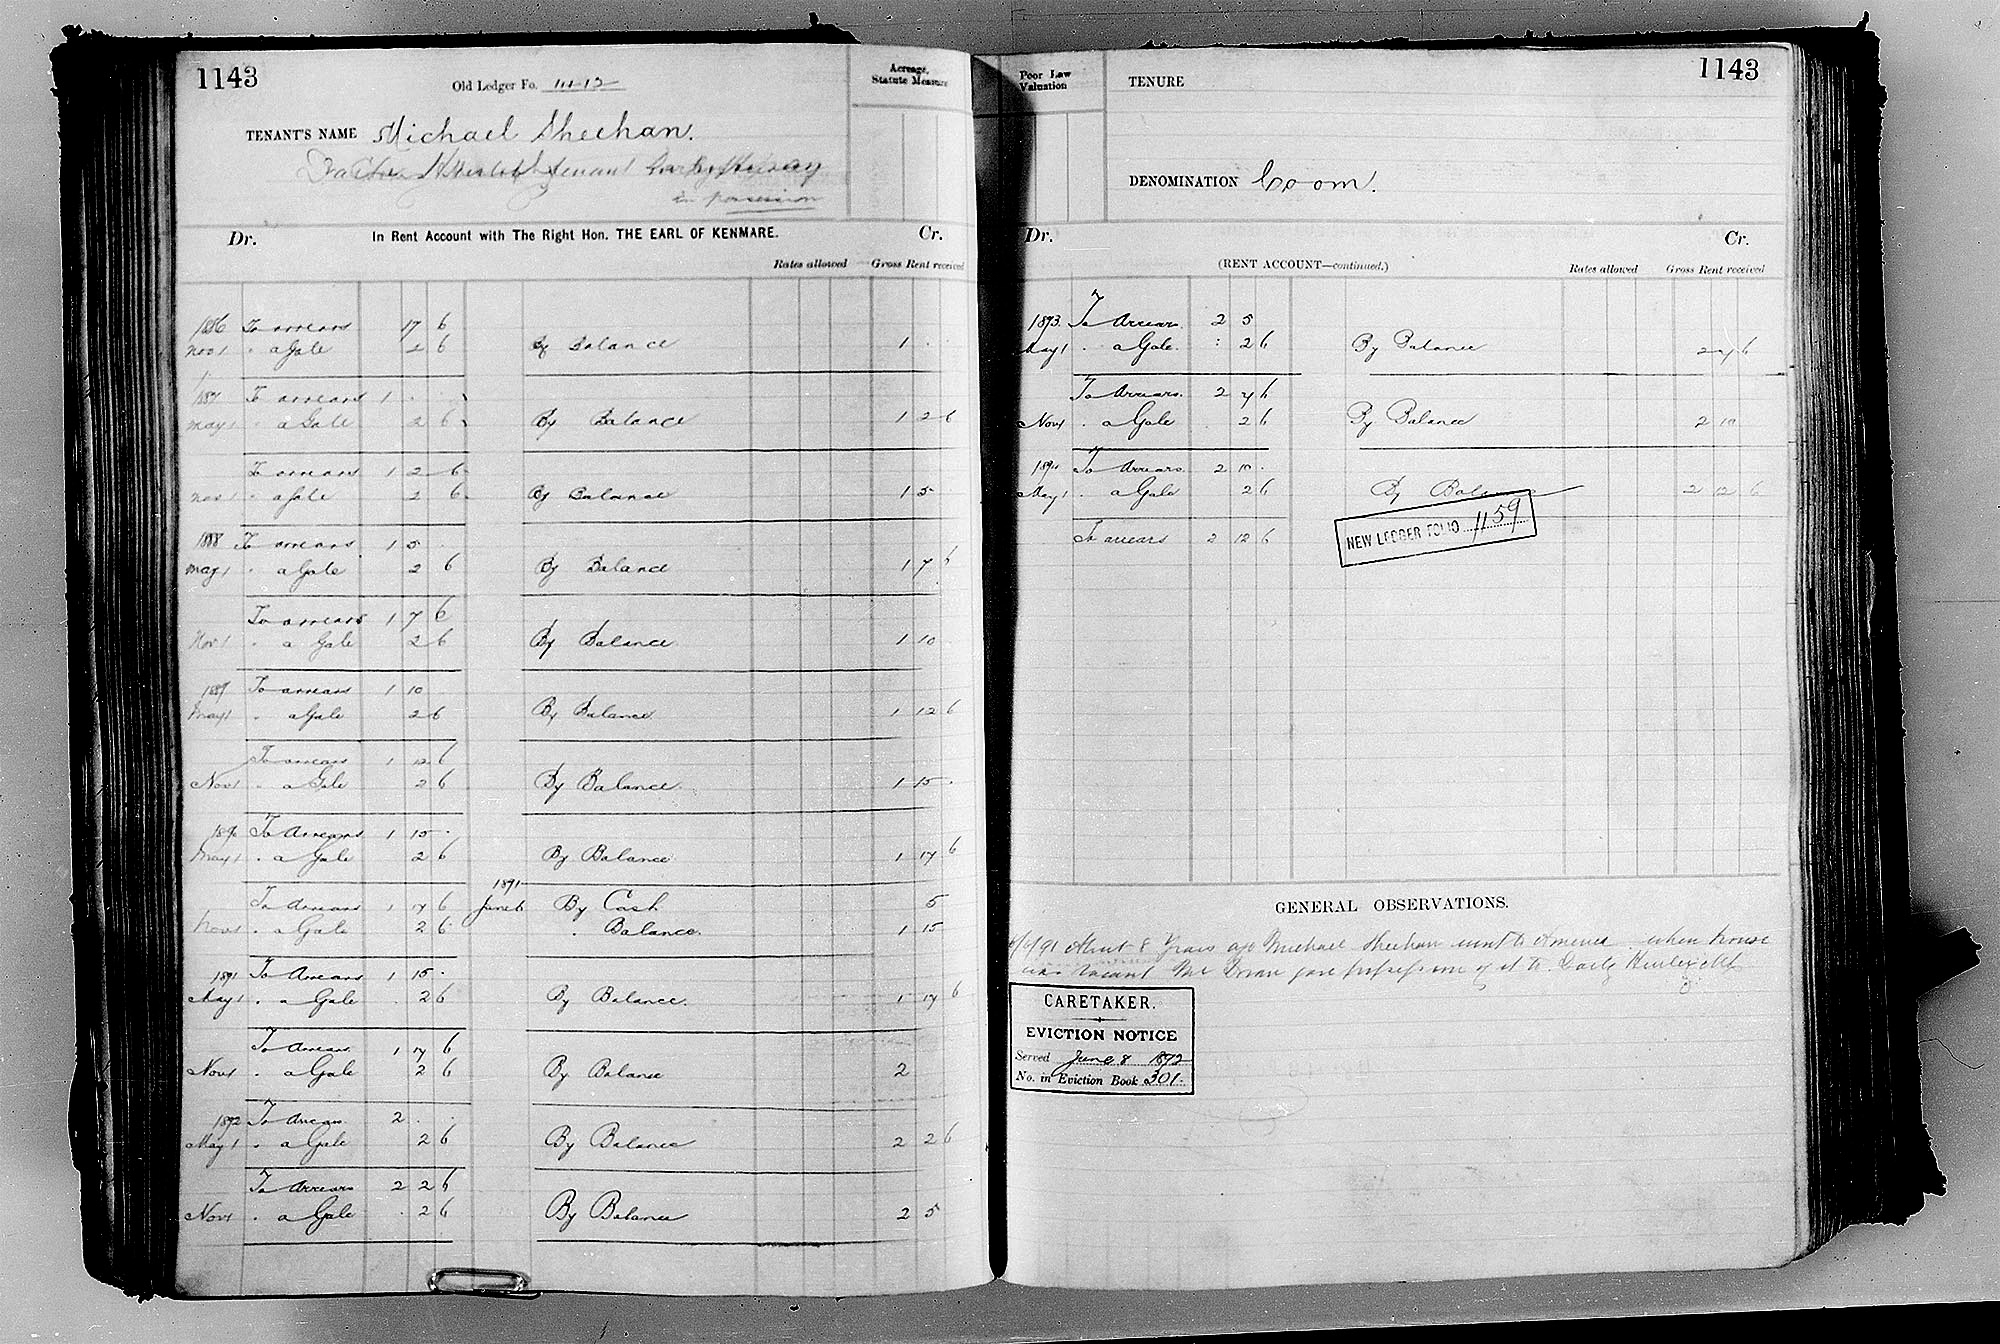 1143
Old Ledger Fo.
Acreage,
Statute Measure
TENANT'S NAME Michael Sheehan.
tenant
in possession
Dr. In Rent Account with The Right Hon. THE EARL OF KENMARE. Cr.
Rates allowed Gross Rent received
1886 To arrears 17 6
Nov 1 " a Gale 2 6 By Balance 1 . .
1887 To arrears 1 . .
May 1 " a Gale 2 6 By Balance 1 2 6
To arrears 1 2 6
Nov 1 " a Gale 2 6 By Balance 1 5 .
1888 To arrears 1 5 .
May 1 " a Gale 2 6 By Balance 1 7 6
To arrears 1 7 6
Nov 1 " a Gale 2 6 By Balance 1 10
1889 To arrears 1 10
May 1 " a Gale 2 6 By Balance 1 12 6
To arrears 1 12 6
Nov 1 " a Gale 2 6 By Balance 1 15 .
1890 To Arrears 1 15 .
May 1 " a Gale 2 6 By Balance 1 17 6
To Arrears 1 17 6 1891 June 6 By Cash 5
Nov 1 " a Gale 2 6 " Balance. 1 15
1891 To Arrears 1 15 .
May 1 " a Gale . 2 6 By Balance. 1 17 6
To Arrears 1 17 6
Nov 1 " a Gale 2 6 By Balance 2
1892 To Arrears 2 . .
May 1 " a Gale 2 6 By Balance 2 2 6
To Arrears 2 2 6
Nov 1 " a Gale . 2 6 By Balance 2 5
1143
Poor Law
Valuation
TENURE
DENOMINATION Coom.
Dr. Cr.
(RENT ACCOUNT—continued.) Rates allowed Gross Rent received
1893. To Arrears. 2 5
May 1 " a Gale. 2 6 By Balance 2 7 6
To Arrears. 2 7 6
Nov 1 " a Gale 2 6 By Balance 2 10
1894 To Arrears 2 10 .
May 1 " a Gale 2 6 By Balance 2 12 6
To arrears 2 12 6
NEW LEDGER FOLIO 1159
GENERAL OBSERVATIONS.
91 About 8 Years ago Michael Sheehan went to America when house
was vacant Mr gave possession of it to
CARETAKER.
EVICTION NOTICE
Served June 8 1892
No. in Eviction Book 301.